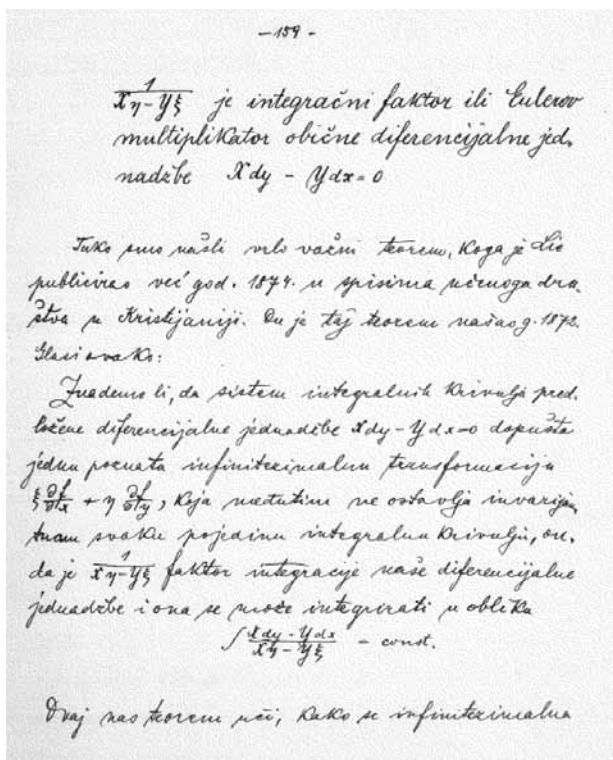 - 159 -
1/(Xη-Yξ) je integračni faktor ili Eulerov
multiplikator obične diferencijalne jed-
nadžbe Xdy - Ydx = 0
Tako smo našli vrlo važni teorem, koga je Lie
publicirao već god. 1874. u spisima učenoga dru-
štva u Kristijaniji. On je taj teorem našao g. 1872.
Glasi ovako:
Znademo li, da sistem integralnih krivulja pred-
ložene diferencijalne jednadžbe Xdy - Ydx = 0 dopušta
jednu poznatu infinitezimalnu transformaciju
ξ ∂f/∂x + η ∂f/∂y, koja međutim ne ostavlja invarijan-
tnom svaku pojedinu integralnu krivulju, on-
da je 1/(Xη-Yξ) faktor integracije naše diferencijalne
jednadžbe i ona se može integrirati u obliku
∫ (Xdy - Ydx)/(Xη - Yξ) = const.
Ovaj nas teorem uči, kako se infinitezimalna